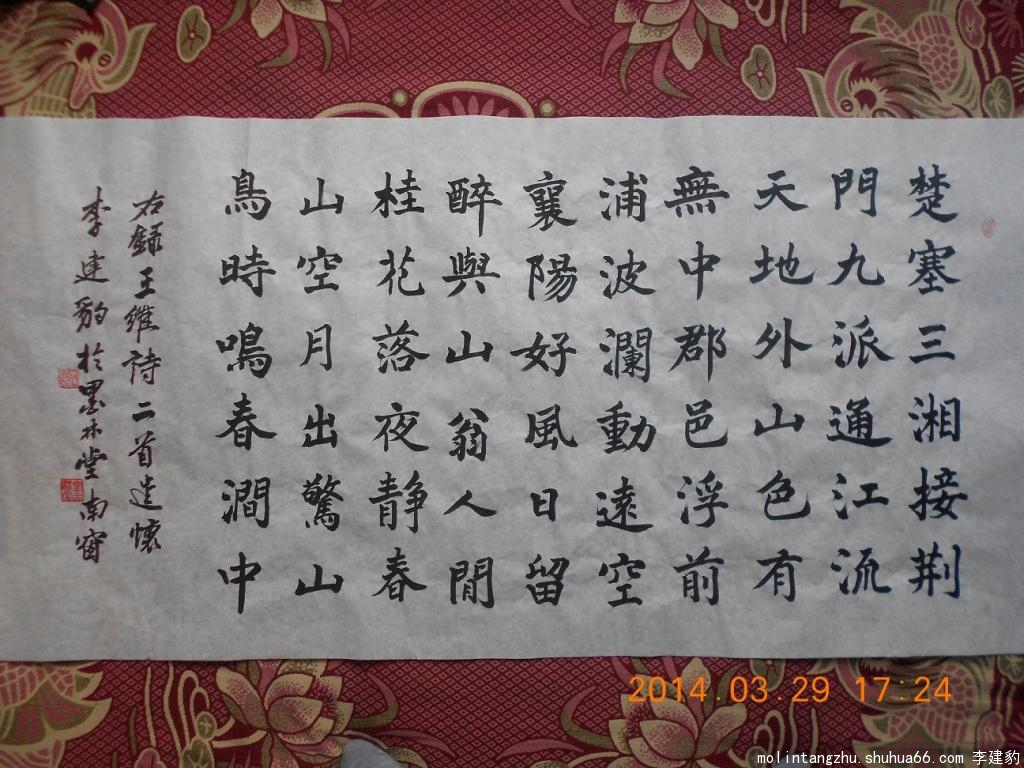 楚塞三湘接荆
門九派通江流
天地外山色有
無中郡邑浮前
浦波瀾動遠空
襄陽好風日留
醉與山翁人閒
桂花落夜静春
山空月出驚山
鳥時鳴春澗中
右録王維詩二首遣懷
李建豹於墨林堂南窗
2014.03.29 17:24
molintangzhu.shuhua66.com 李建豹